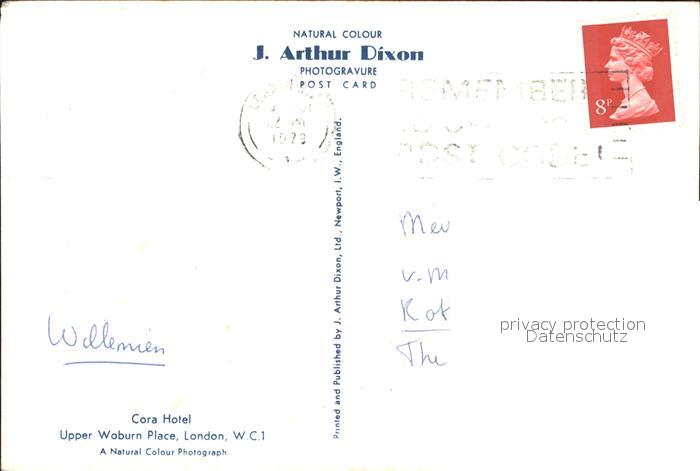 NATURAL COLOUR
J. Arthur Dixon
PHOTOGRAVURE
POST CARD
1979
REMEMBER
POST CODE
8P
Printed and Published by J. Arthur Dixon, Ltd., Newport, I.W., England.
Mev
v.m
Rot
The
privacy protection
Datenschutz
Willemien
Cora Hotel
Upper Woburn Place, London, W.C.1
A Natural Colour Photograph